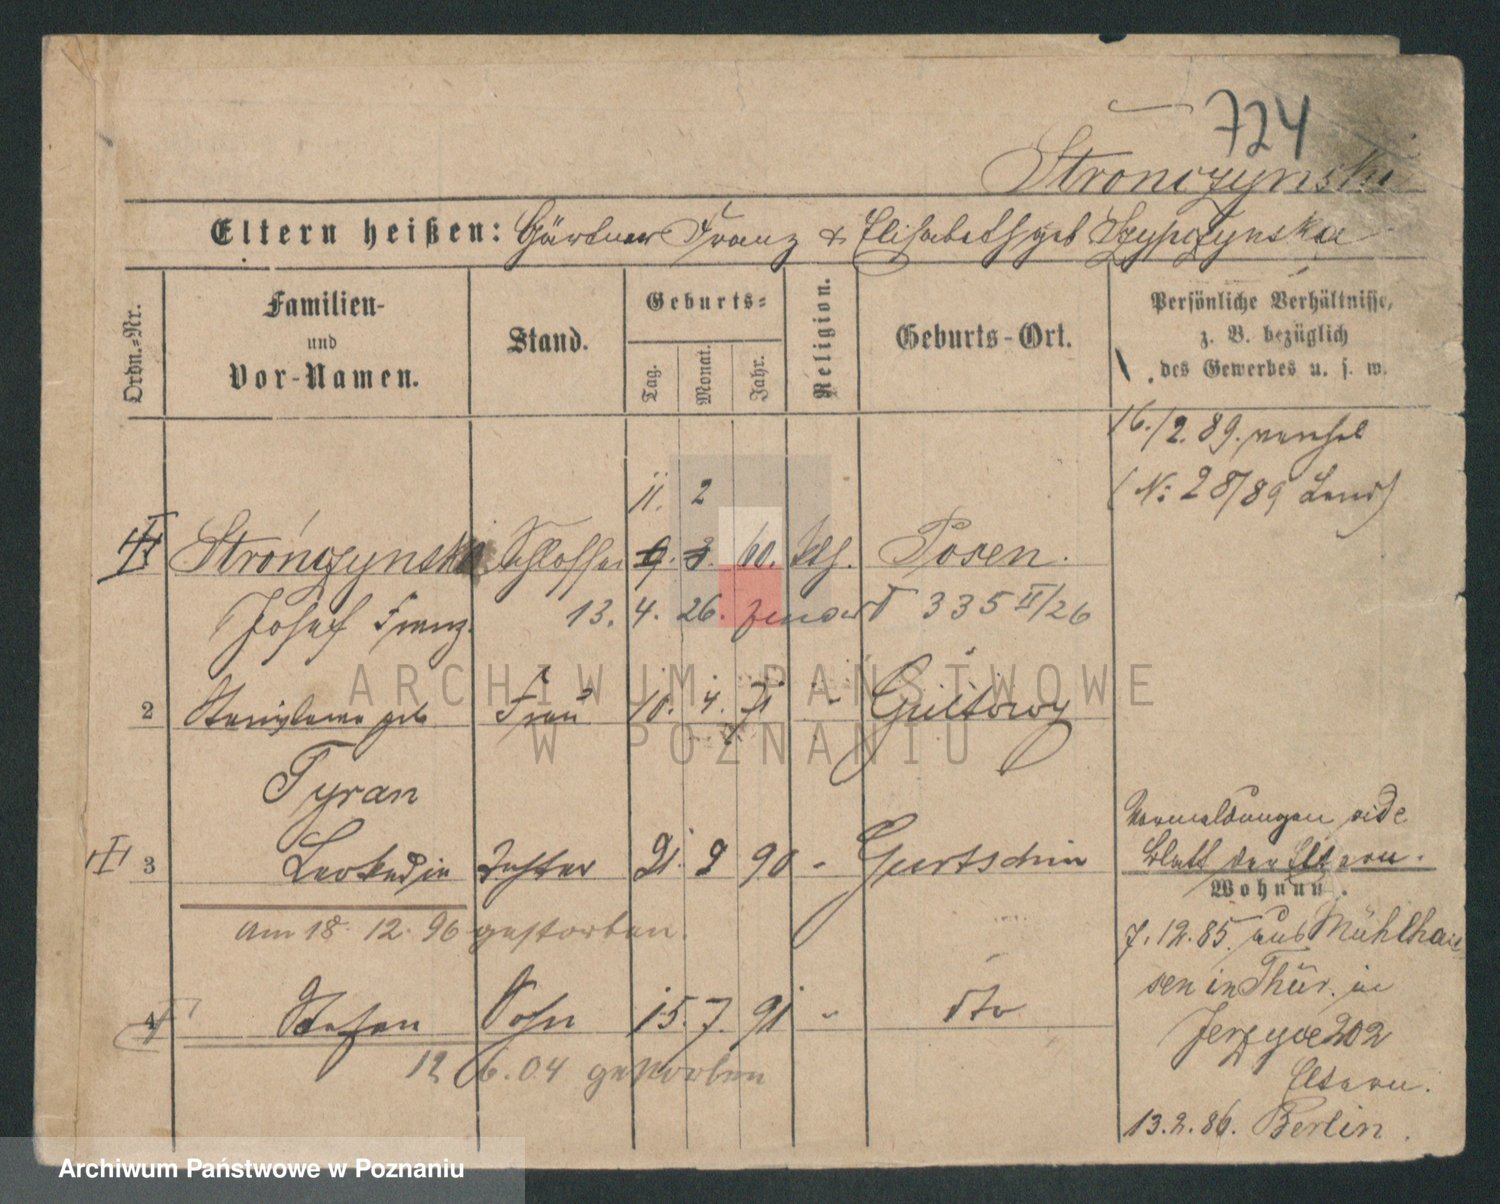 724
Stronczynski
Eltern heißen: Gärtner Franz & Elisabeth geb Szypczynska
Ordn.-Nr.
Familien-
und
Vor-Namen.
Stand.
Geburts-
Tag.
Monat.
Jahr.
Religion.
Geburts-Ort.
Persönliche Verhältnisse,
z. B. bezüglich
des Gewerbes u. s. w.
16./2. 89.
(No 28/89
11. 2
Strończynski Schlosser 9. 3. 60. kth. Posen.
Josef Franz. 13. 4. 26. 335 II/26
2 Stanislawa geb Frau 10. 4. 71 " Gultowy
Tyran
3 Leokadia Tochter 21. 2 90 " Gurtschin
am 18. 12. 96 gestorben.
4 Stefan Sohn 15. 7. 91 " dto
12 6. 04 gestorben
Vormeldungen vide
Blatt der Eltern.
Wohnung.
7. 12. 85. aus Mühlhau
sen in Thür. in
Jerzyce 202
Eltern.
13. 2. 86. Berlin.
ARCHIWUM PAŃSTWOWE
W POZNANIU
Archiwum Państwowe w Poznaniu